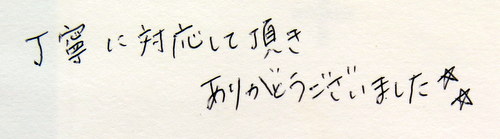 丁寧に対応して頂き
ありがとうございました☆☆